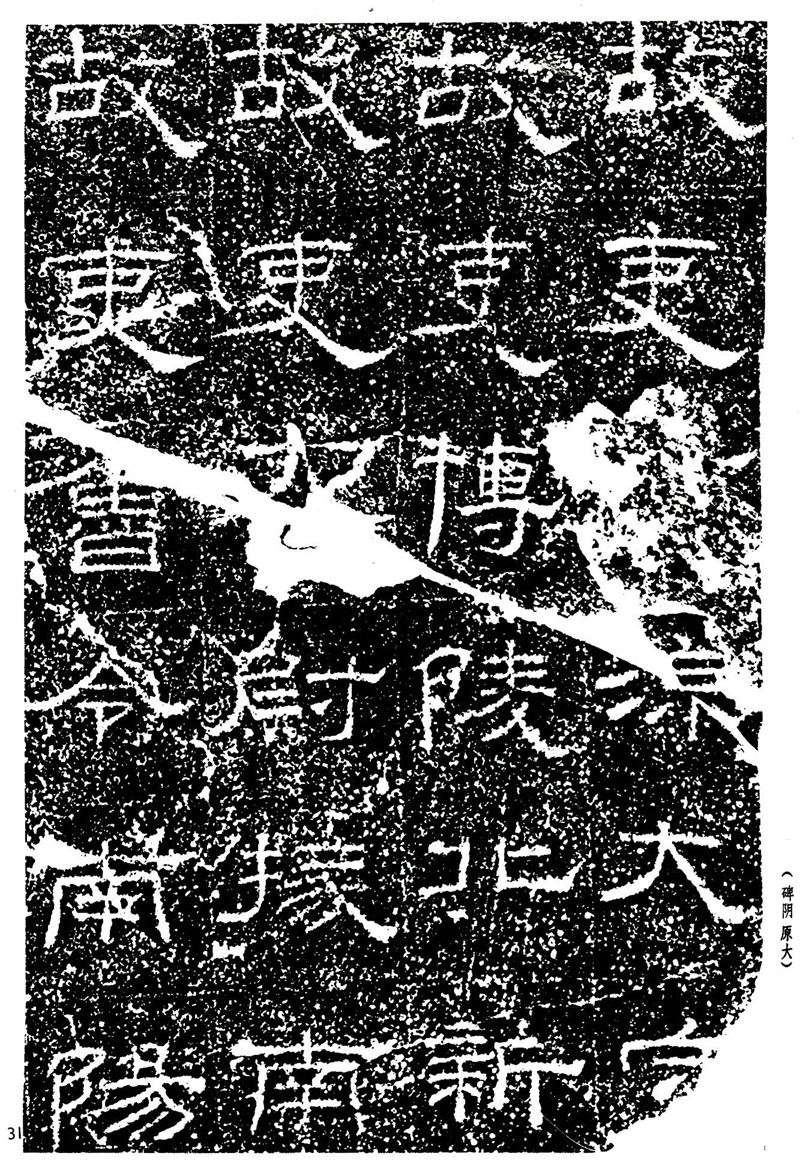 故吏大
故吏博陵北新
故吏尉掾南
故吏令南陽
（碑阴原大）
31